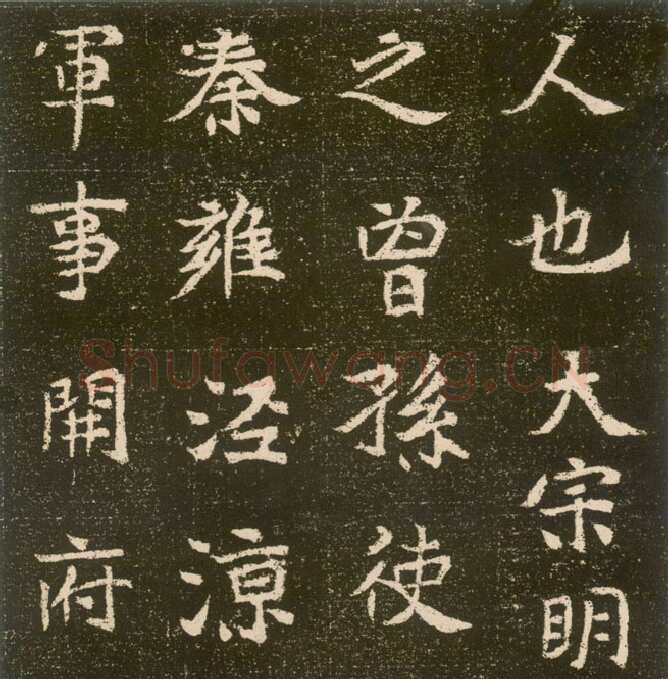 人也大宗明
之曾孫使
秦雍涇涼
軍事開府
Shufawang.CN